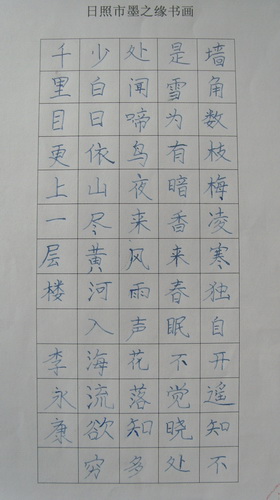 日照市墨之缘书画
墙角数枝梅凌寒独自开遥知不
是雪为有暗香来春眠不觉晓处
处闻啼鸟夜来风雨声花落知多
少白日依山尽黄河入海流欲穷
千里目更上一层楼 李永康